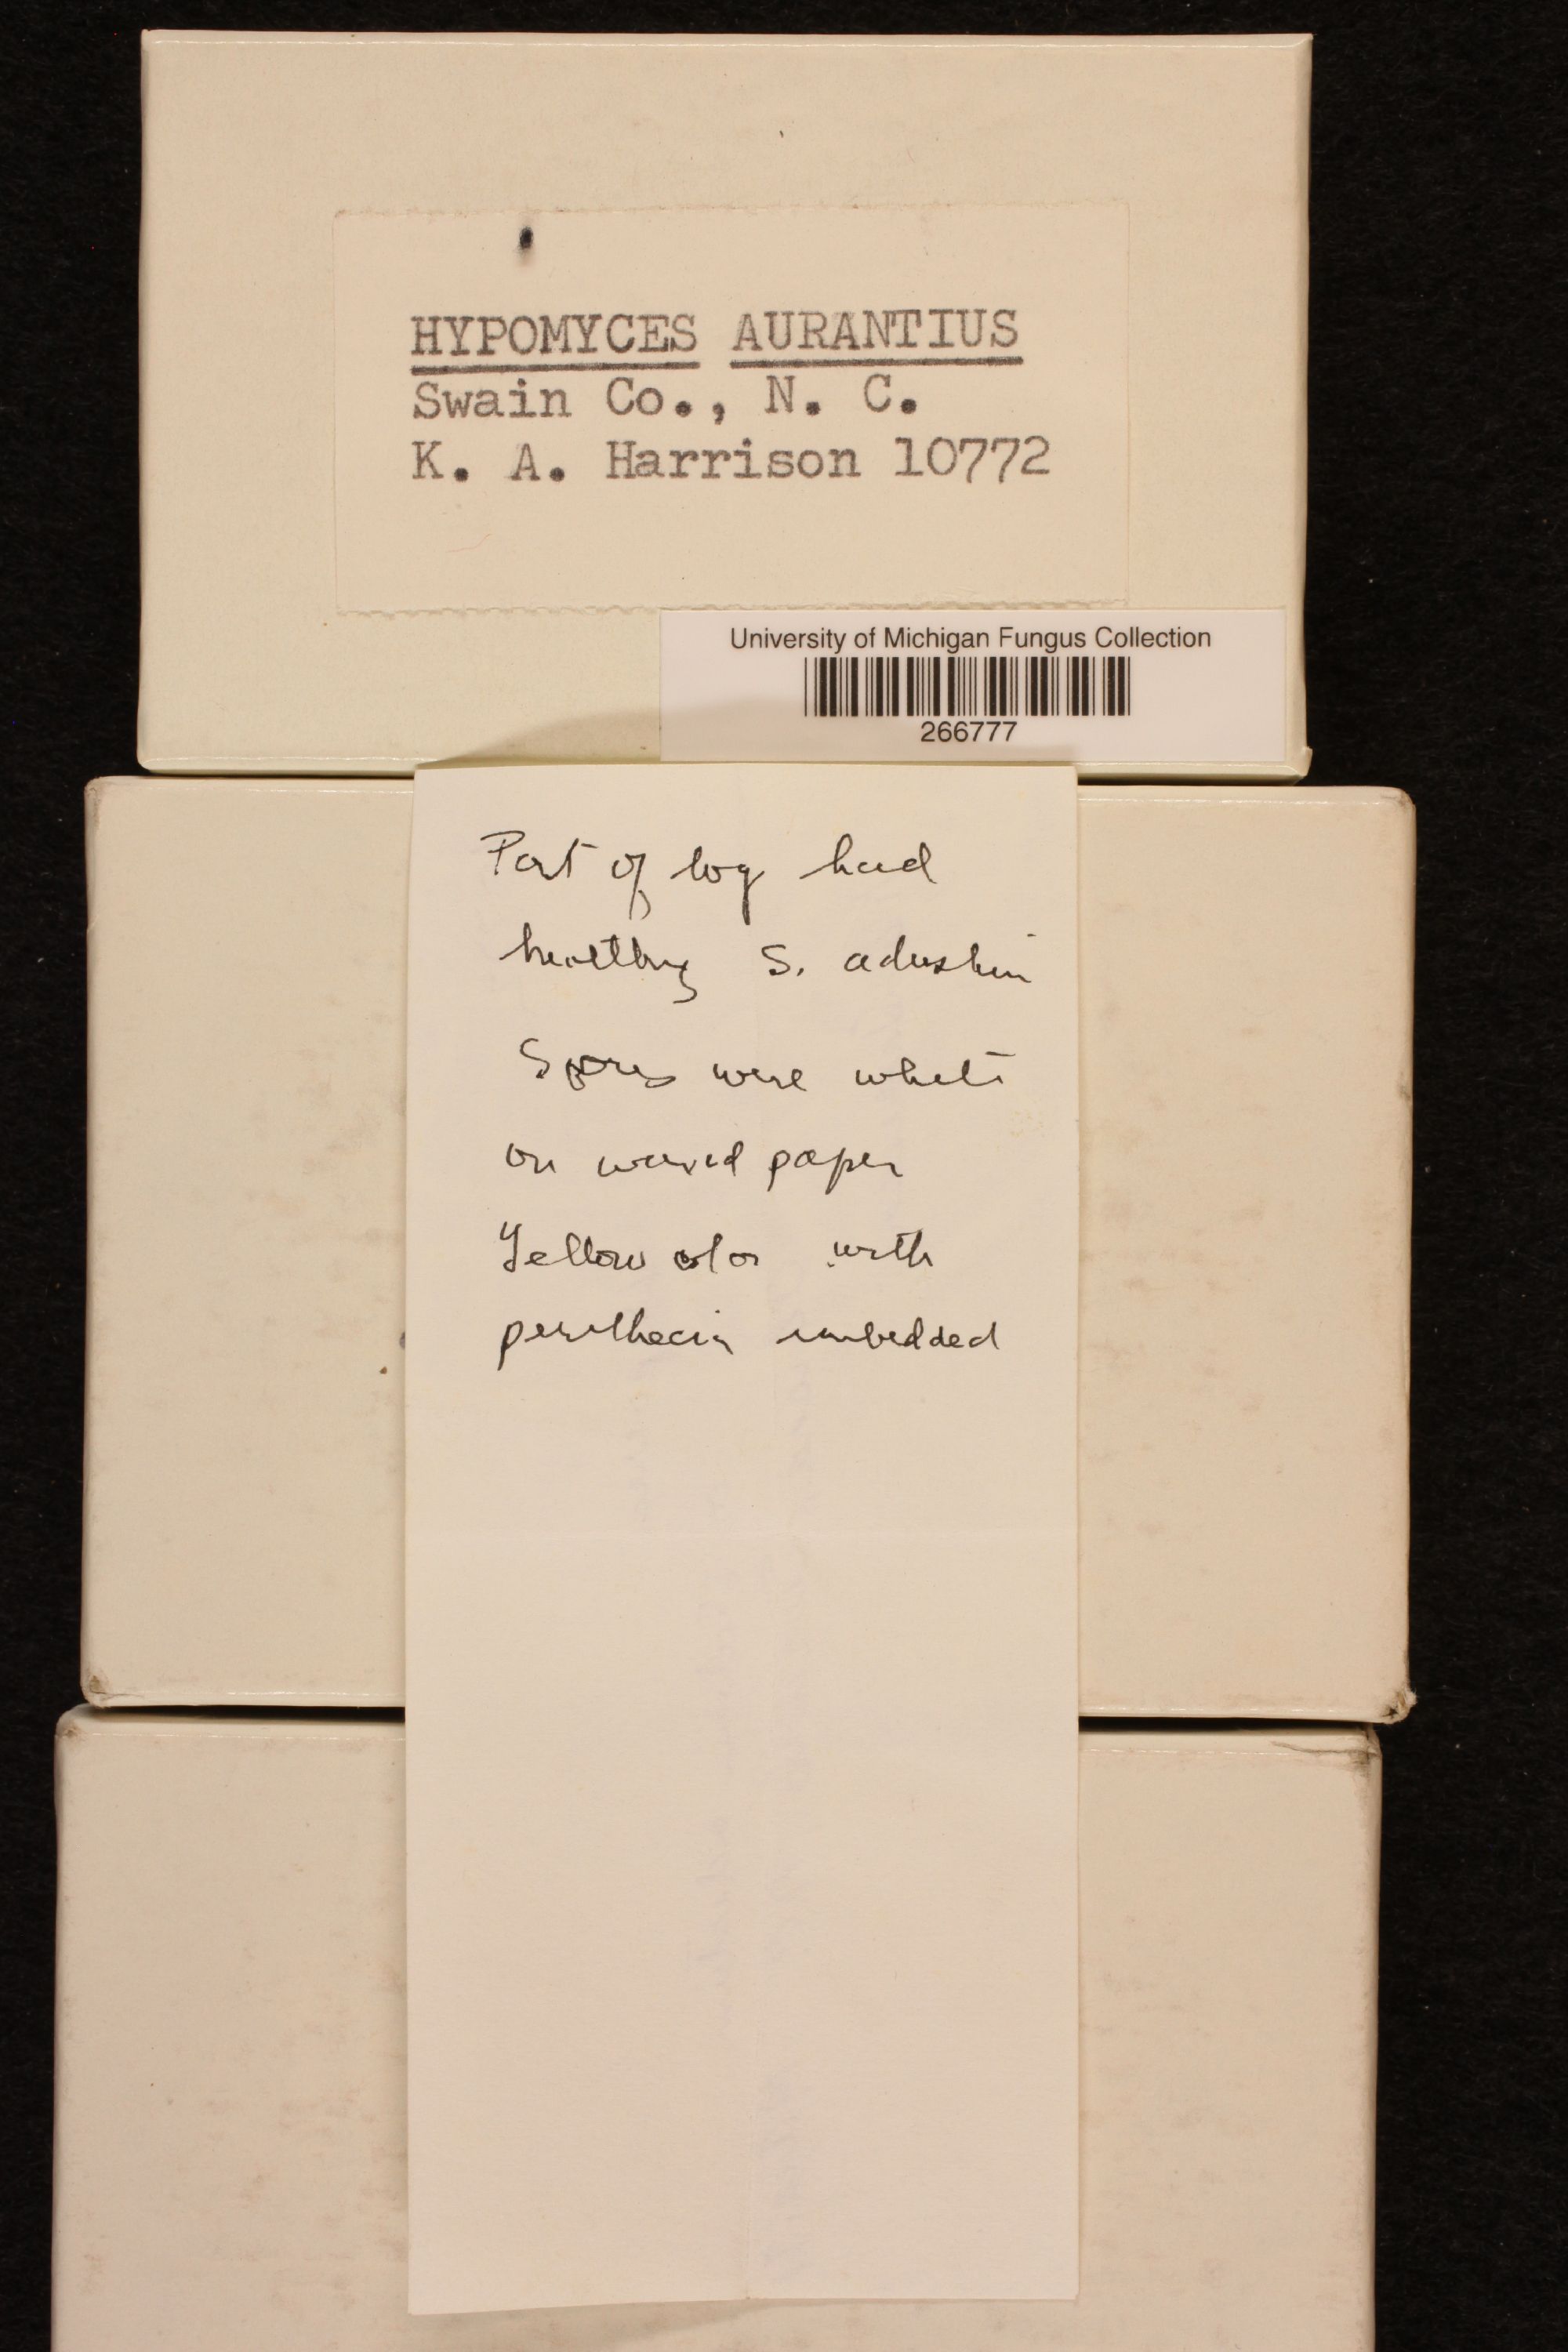 HYPOMYCES AURANTIUS
Swain Co., N. C.
K. A. Harrison 10772
University of Michigan Fungus Collection
266777
Part of log had
healthy S. adustum
Spores were white
on waxed paper
Yellow color with
perithecia imbedded